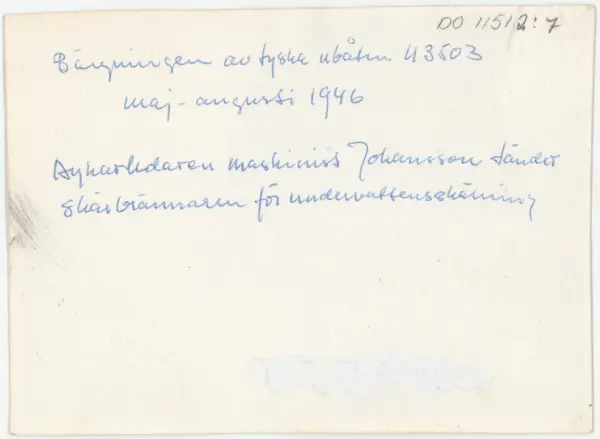 DO 11512:7
Bärgningen av tyska ubåten U3503
maj - augusti 1946
Dykarledaren maskinist Johansson tänder
skärbrännaren för undervattensskärning